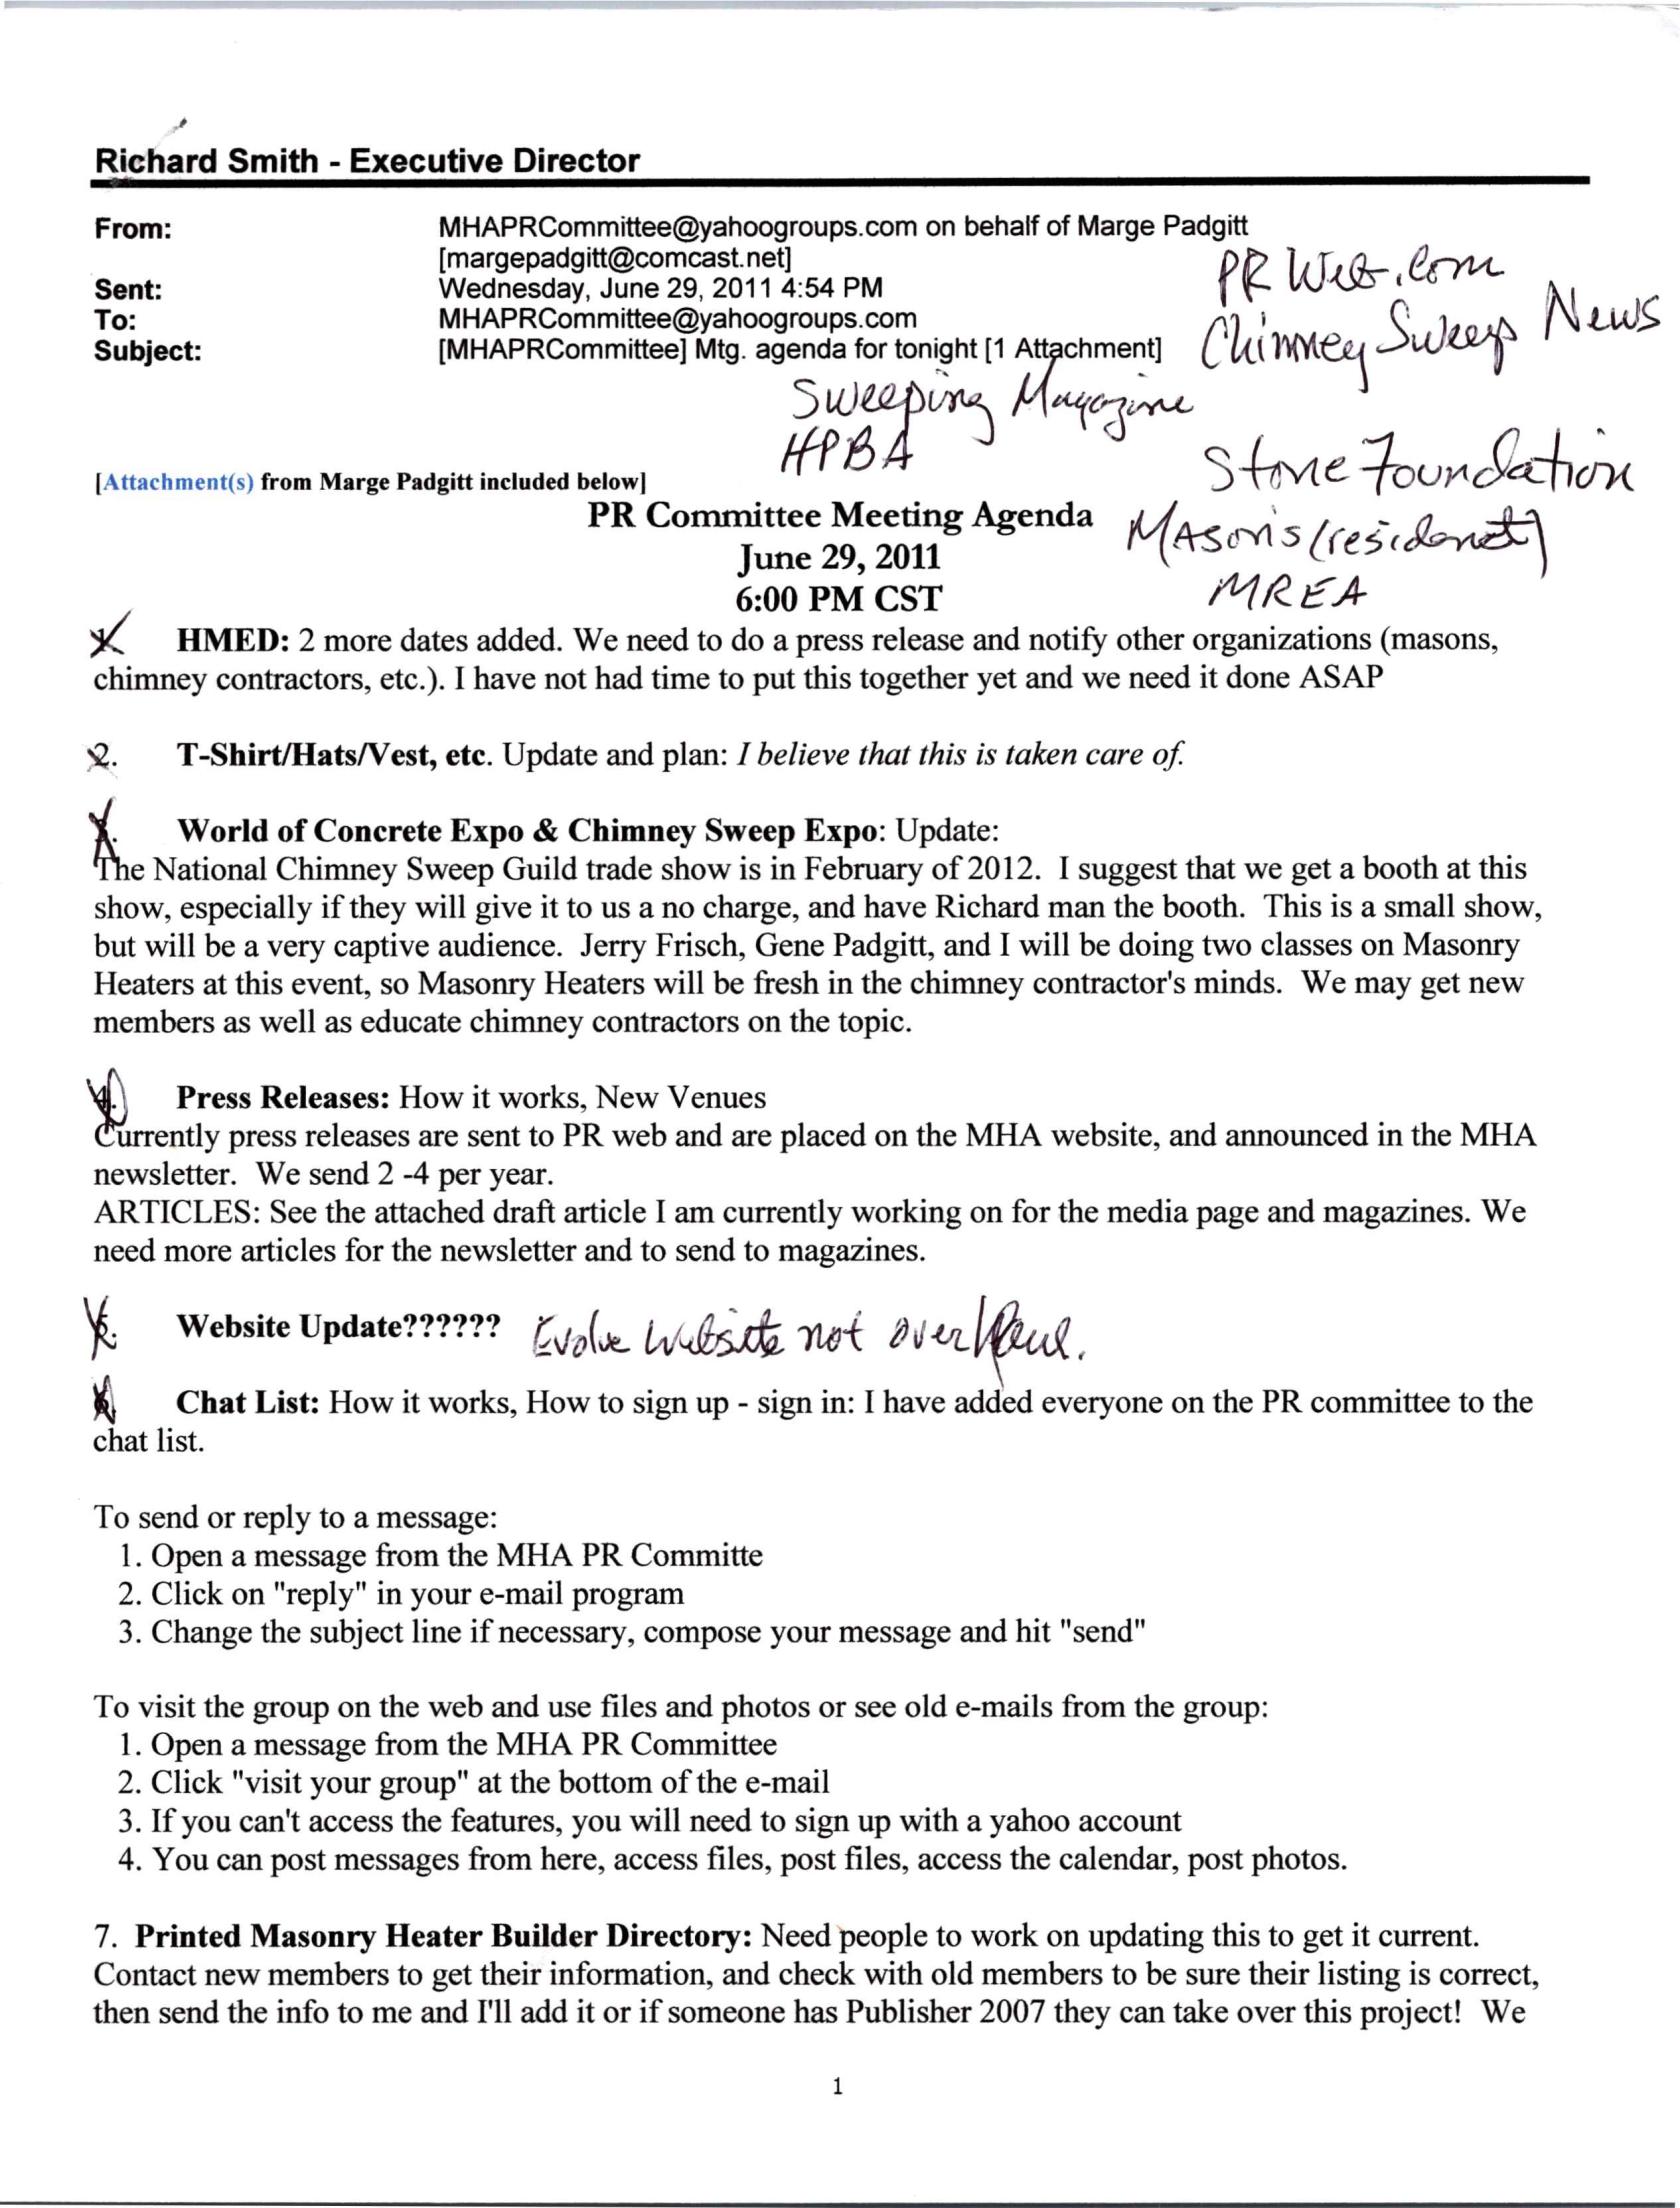 Richard Smith - Executive Director
From: MHAPRCommittee@yahoogroups.com on behalf of Marge Padgitt
[margepadgitt@comcast.net]
Sent: Wednesday, June 29, 2011 4:54 PM
To: MHAPRCommittee@yahoogroups.com
Subject: [MHAPRCommittee] Mtg. agenda for tonight [1 Attachment]
PR Web.com
Chimney Sweeps News
Sweeping Magazine
HPBA
Stone Foundation
Masons
MREA
[Attachment(s) from Marge Padgitt included below]
PR Committee Meeting Agenda
June 29, 2011
6:00 PM CST
1. HMED: 2 more dates added. We need to do a press release and notify other organizations (masons,
chimney contractors, etc.). I have not had time to put this together yet and we need it done ASAP
2. T-Shirt/Hats/Vest, etc. Update and plan: I believe that this is taken care of.
3. World of Concrete Expo & Chimney Sweep Expo: Update:
The National Chimney Sweep Guild trade show is in February of 2012. I suggest that we get a booth at this
show, especially if they will give it to us a no charge, and have Richard man the booth. This is a small show,
but will be a very captive audience. Jerry Frisch, Gene Padgitt, and I will be doing two classes on Masonry
Heaters at this event, so Masonry Heaters will be fresh in the chimney contractor's minds. We may get new
members as well as educate chimney contractors on the topic.
4. Press Releases: How it works, New Venues
Currently press releases are sent to PR web and are placed on the MHA website, and announced in the MHA
newsletter. We send 2 -4 per year.
ARTICLES: See the attached draft article I am currently working on for the media page and magazines. We
need more articles for the newsletter and to send to magazines.
5. Website Update?????? Evolve Website not overhaul.
6. Chat List: How it works, How to sign up - sign in: I have added everyone on the PR committee to the
chat list.
To send or reply to a message:
1. Open a message from the MHA PR Committe
2. Click on "reply" in your e-mail program
3. Change the subject line if necessary, compose your message and hit "send"
To visit the group on the web and use files and photos or see old e-mails from the group:
1. Open a message from the MHA PR Committee
2. Click "visit your group" at the bottom of the e-mail
3. If you can't access the features, you will need to sign up with a yahoo account
4. You can post messages from here, access files, post files, access the calendar, post photos.
7. Printed Masonry Heater Builder Directory: Need people to work on updating this to get it current.
Contact new members to get their information, and check with old members to be sure their listing is correct,
then send the info to me and I'll add it or if someone has Publisher 2007 they can take over this project! We
1